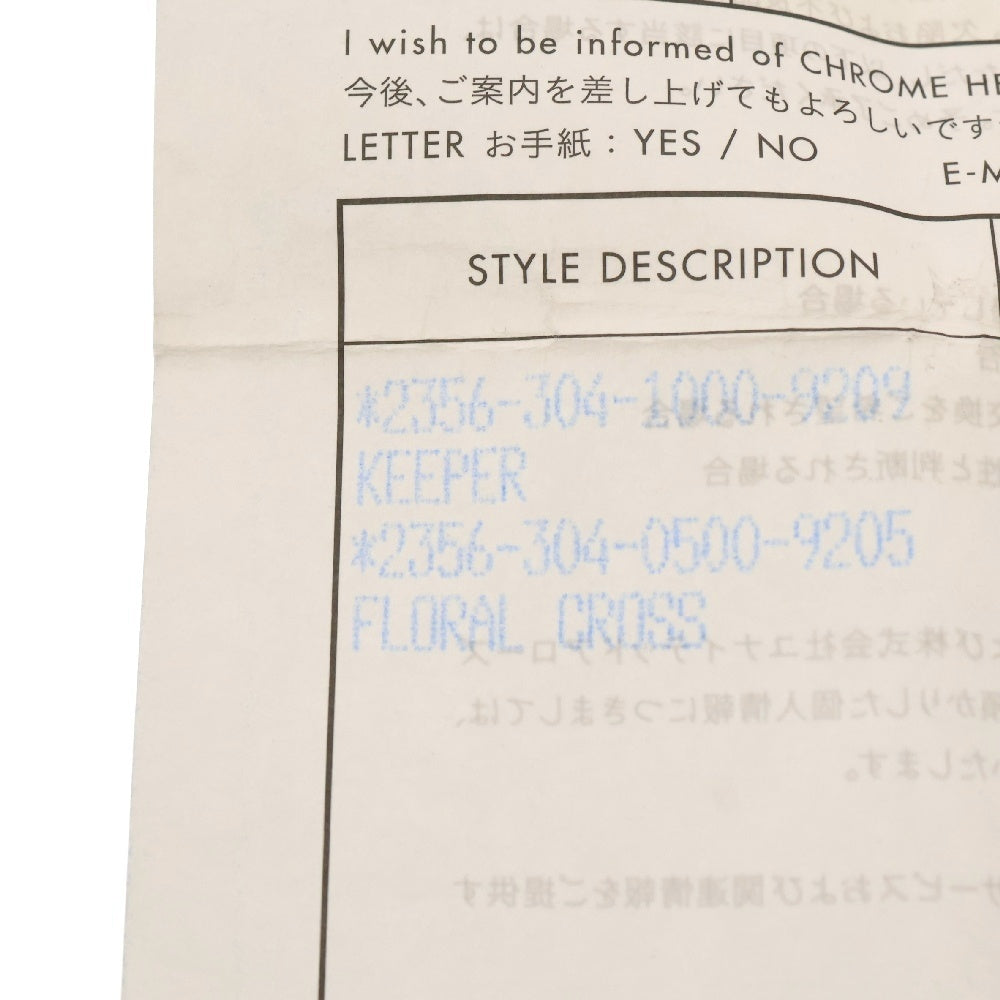 I wish to be informed of CHROME HE
今後、ご案内を差し上げてもよろしいです
LETTER お手紙 : YES / NO
E-M
STYLE DESCRIPTION
*2356-304-1000-9209
KEEPER
*2356-304-0500-9205
FLORAL CROSS